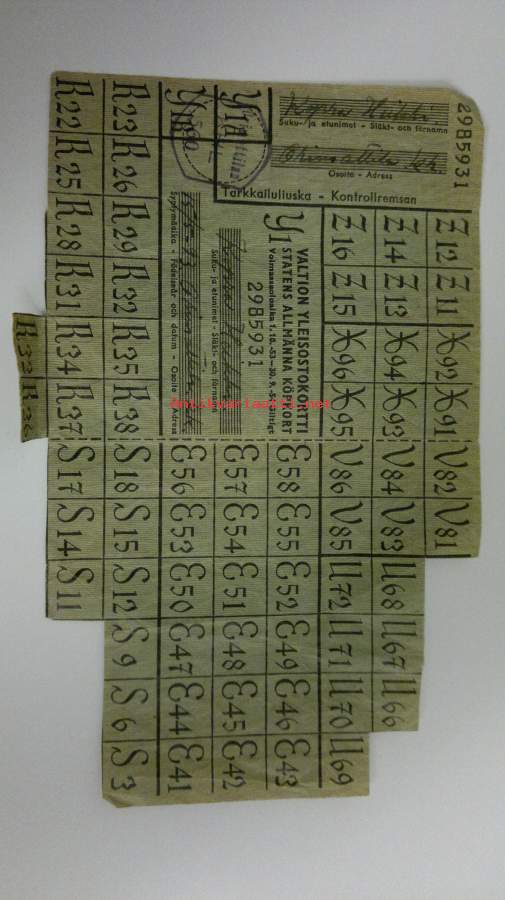 29B5931
Suku- ja etunimet - Släkt- och förnamn
Osoite - Adress
Tarkkailuliuska - Kontrollremsan
Y1A
Y1B
VALTION YLEISOSTOKORTTI
STATENS ALLMÄNNA KÖPKORT
Y1
Voimassaoloaika 1. 10. -53—30. 9. -54
29B5931
Suku- ja etunimet - Släkt- och förnamn
Syntymäaika - Födelseår och datum - Osoite - Adress
Z12 Z11 X92 X91 V82 V81
Z14 Z13 X94 X93 V84 V83 U68 U67 U66
Z16 Z15 X96 X95 V86 V85 U72 U71 U70 U69
E58 E55 E52 E49 E46 E43
E57 E54 E51 E48 E45 E42
E56 E53 E50 E47 E44 E41
R23 R26 R29 R32 R35 R38 S18 S15 S12 S9 S6 S3
R22 R25 R28 R31 R34 R37 S17 S14 S11
R33 R36
Antikvariaatti.net